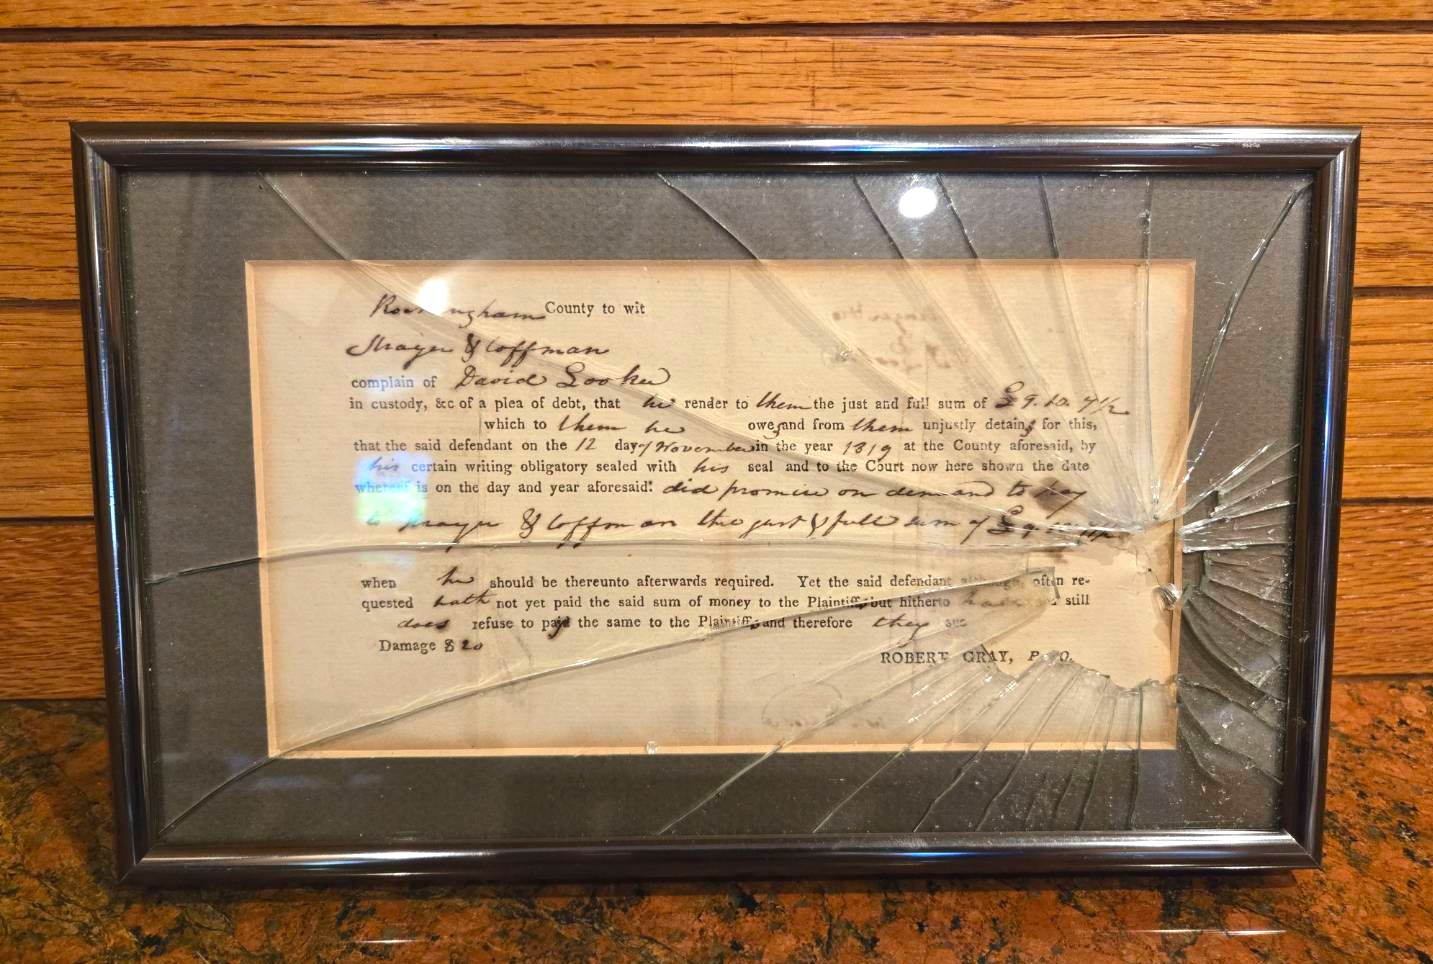 Rockingham County to wit
Strayer & Coffman
complain of David Looker
in custody, &c of a plea of debt, that he render to them the just and full sum of £ 9.12.4½
which to them he owes and from them unjustly detains for this,
that the said defendant on the 12 day of November in the year 1819 at the County aforesaid, by
his certain writing obligatory sealed with his seal and to the Court now here shown the date
whereof is on the day and year aforesaid: did promise on demand to pay
to Strayer & Coffman the just & full sum of £ 9
when he should be thereunto afterwards required. Yet the said defendant although often re-
quested hath not yet paid the said sum of money to the Plaintiffs but hitherto still
does refuse to pay the same to the Plaintiffs and therefore they sue
Damage $ 20
ROBERT GRAY, P. Q.